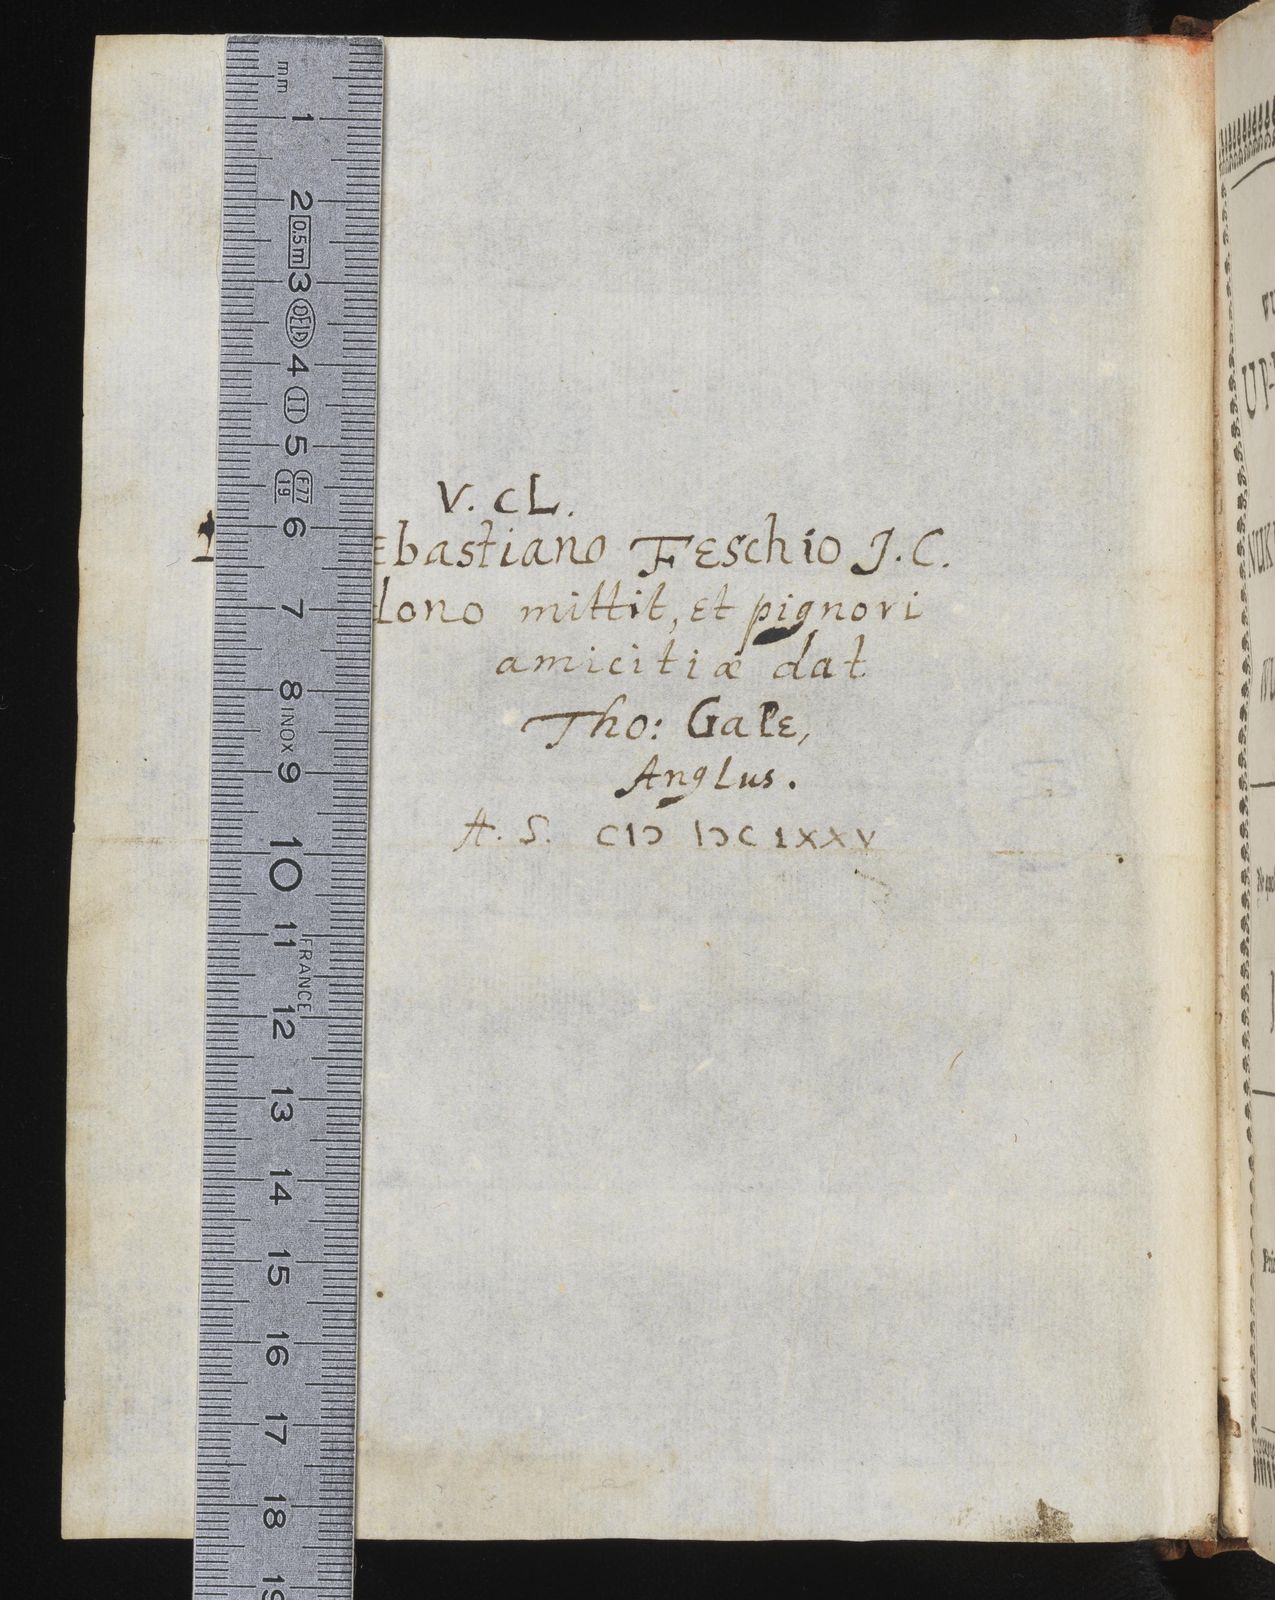 V. CL.
ebastiano Feschio J. C.
dono mittit, et pignori
amicitiæ dat
Tho: Gale,
Anglus.
A. S. CIↃ IↃC LXXV
mm
1
2
0.5 m
3
4
II
5
F77
19
6
7
8
INOX
9
10
11
FRANCE
12
13
14
15
16
17
18
19